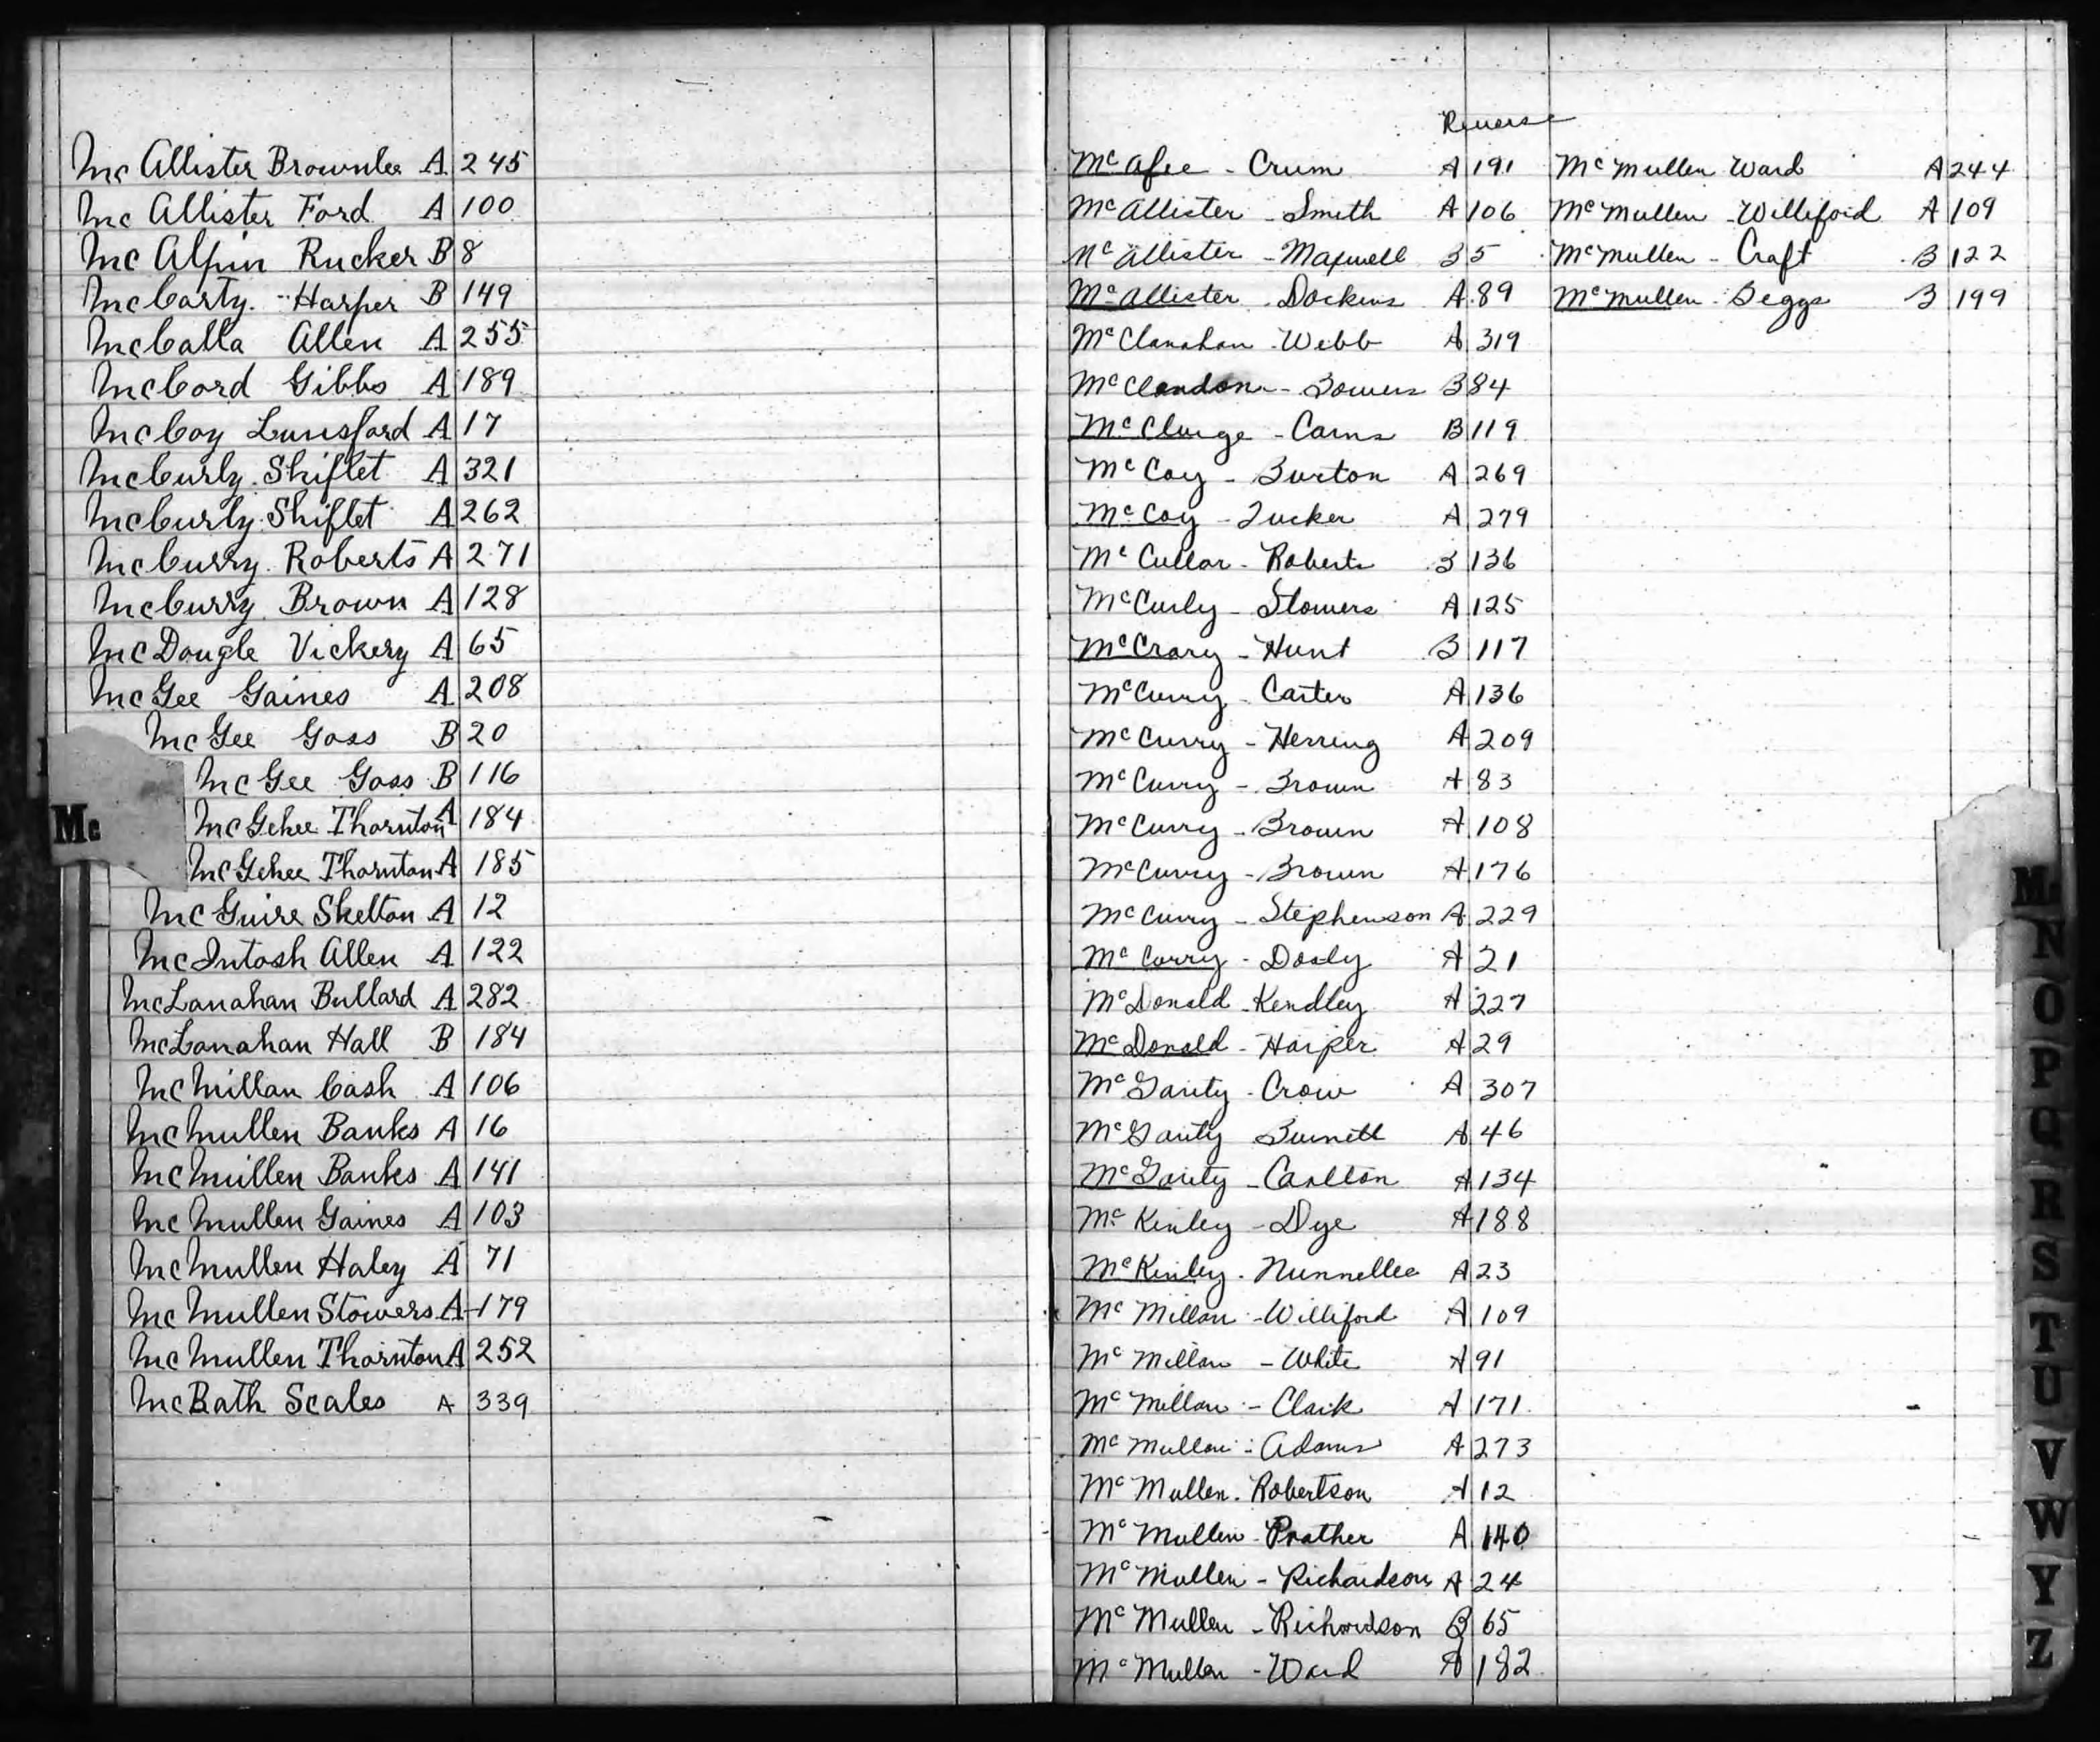 McAllister Brownlee A 245
McAllister Ford A 100
McAlpin Rucker B 8
McCarty - Harper B 149
McCalla Allen A 255
McCord Gibbs A 189
McCoy Lunsford A 17
McCurly Shiflet A 321
McCurly Shiflet A 262
McCurry Roberts A 271
McCurry Brown A 128
McDougle Vickery A 65
McGee Gaines A 208
McGee Goss B 20
McGee Goss B 116
McGehee Thornton A 184
McGehee Thornton A 185
McGuire Skelton A 12
McIntosh Allen A 122
McLanahan Bullard A 282
McLanahan Hall B 184
McMillan Cash A 106
McMullen Banks A 16
McMullen Banks A 141
McMullen Gaines A 103
McMullen Haley A 71
McMullen Stowers A 179
McMullen Thornton A 252
McBath Scales A 339
Mc
Reverse
McAfee - Crum A 191
McAllister - Smith A 106
McAllister - Maxwell B 5
McAllister - Dockins A 89
McClanahan - Webb A 319
McClendon - Bowers B 84
McClurge - Carns B 119
McCoy - Burton A 269
McCoy - Tucker A 279
McCullar - Roberts B 136
McCurly - Stowers A 125
McCrary - Hunt B 117
McCurry - Carter A 136
McCurry - Herring A 209
McCurry - Brown A 83
McCurry - Brown A 108
McCurry - Brown A 176
McCurry - Stephenson A 229
McCurry - Dooly A 21
McDonald - Kendley A 227
McDonald - Harper A 29
McGarity - Crow A 307
McGarity Burnett A 46
McGarity - Carlton A 134
McKinley - Dye A 188
McKinley - Nunnellee A 23
McMillan - Williford A 109
McMillan - White A 91
McMillan - Clark A 171
McMullan - Adams A 273
McMullen - Robertson A 12
McMullen - Prather A 140
McMullen - Richardson A 24
McMullen - Richardson B 65
McMullen - Ward A 182
McMullen Ward A 244
McMullen - Williford A 109
McMullen - Craft B 122
McMullen - Beggs B 199
Mc
N
O
P
Q
R
S
T
U
V
W
Y
Z